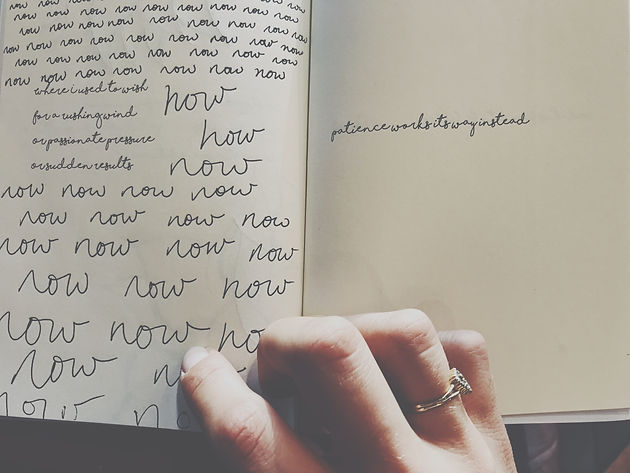 now now now now now now now now now
now now now now now now now now now
now now now now now now now now now
now now now now now now now now now
now now now now now now now now
now now now now now now now
where i used to wish how
for a rushing wind
or passionate pressure how
or sudden results now
now now now now
now now now now
now now now now
now now now
now now no
now n
now no
patience works its way instead